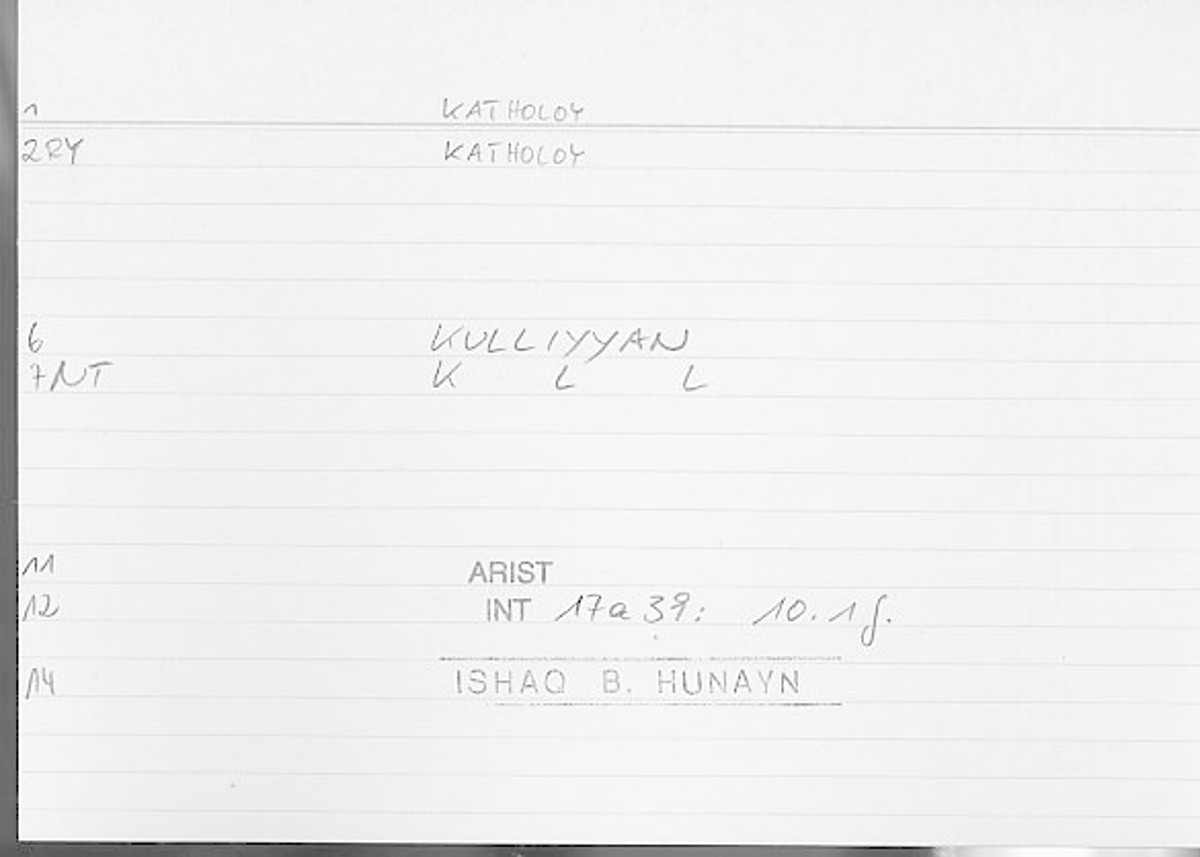 1 KATHOLOY
2RY KATHOLOY
6 KULLIYYAN
7NT K L L
11 ARIST
12 INT 17a39: 10.1f.
14 ISHAQ B. HUNAYN